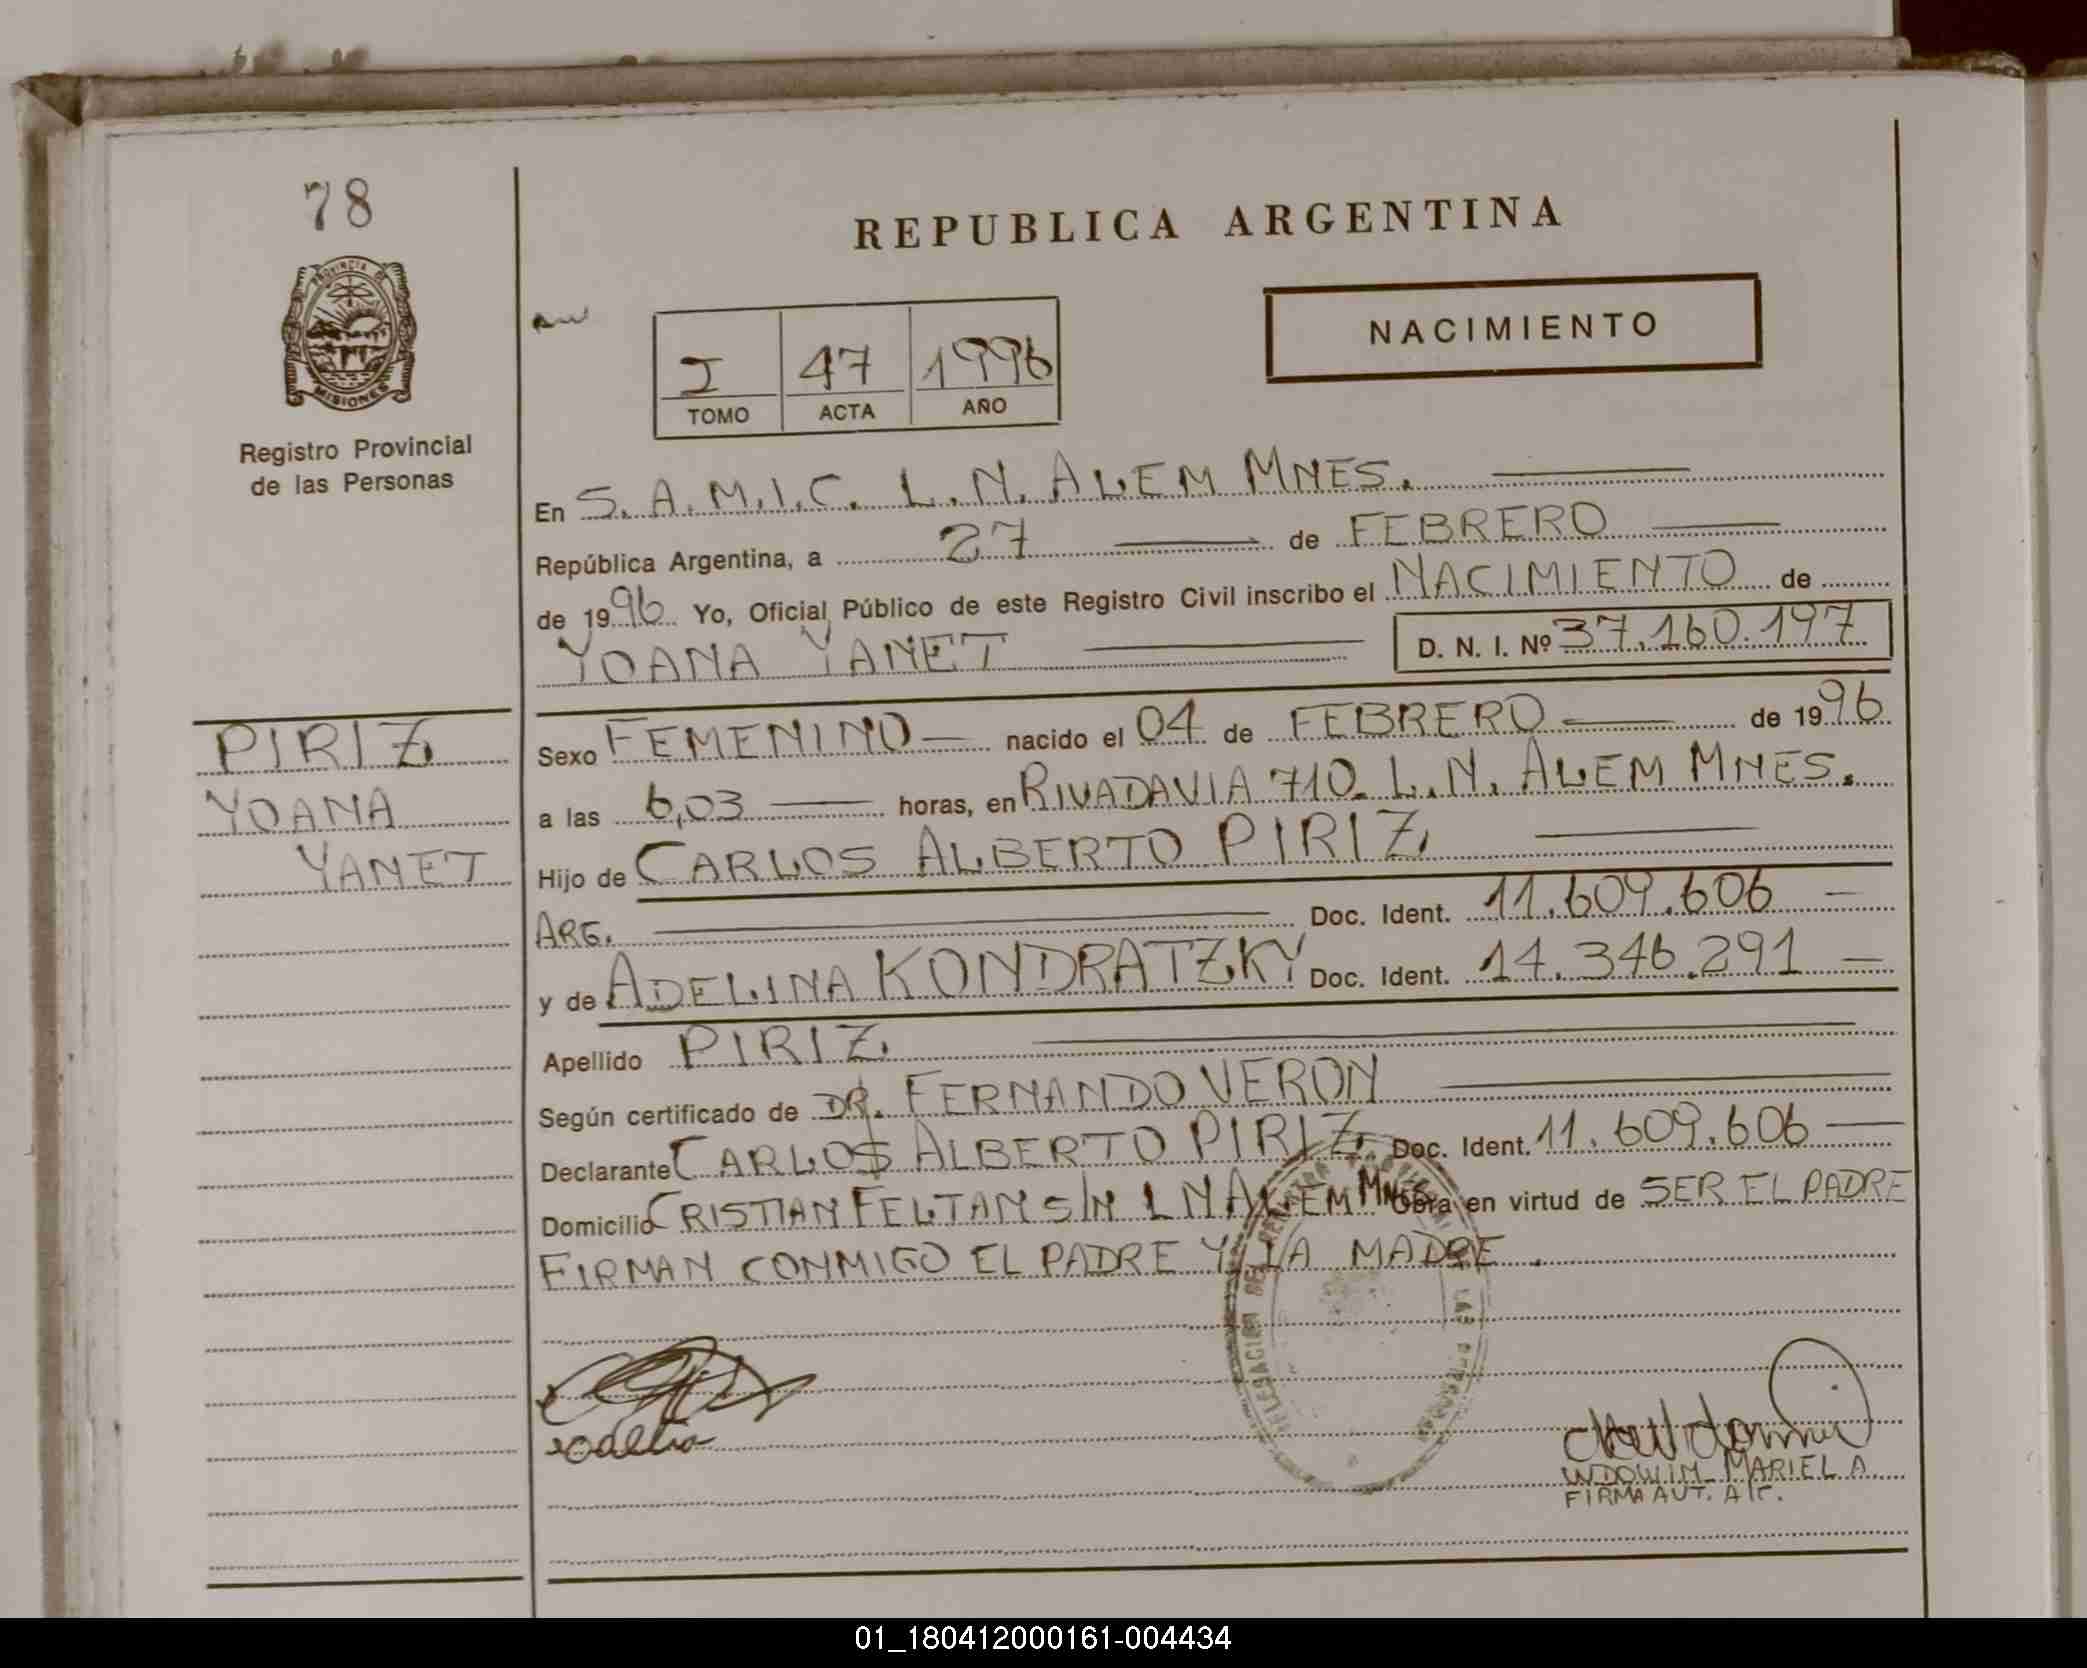 78
REPUBLICA ARGENTINA
PROVINCIA DE
MISIONES
Registro Provincial
de las Personas
I 47 1996
TOMO ACTA AÑO
NACIMIENTO
En S.A.M.I.C. L.N. ALEM MNES.
República Argentina, a 27 de FEBRERO
de 1996 Yo, Oficial Público de este Registro Civil inscribo el NACIMIENTO de
YOANA YANET D. N. I. Nº 37.160.197
PIRIZ
YOANA
YANET
Sexo FEMENINO nacido el 04 de FEBRERO de 1996
a las 6,03 horas, en RIVADAVIA 710. L.N. ALEM MNES.
Hijo de CARLOS ALBERTO PIRIZ
ARG. Doc. Ident. 11.609.606
y de ADELINA KONDRATZKY Doc. Ident. 14.346.291
Apellido PIRIZ
Según certificado de DR. FERNANDO VERON
Declarante CARLOS ALBERTO PIRIZ Doc. Ident. 11.609.606
Domicilio CRISTIAN FELTAN S/N L N ALEM MNES Obra en virtud de SER EL PADRE
FIRMAN CONMIGO EL PADRE Y LA MADRE.
MARIEL A.
FIRMA AUT. A/C.
01_180412000161-004434